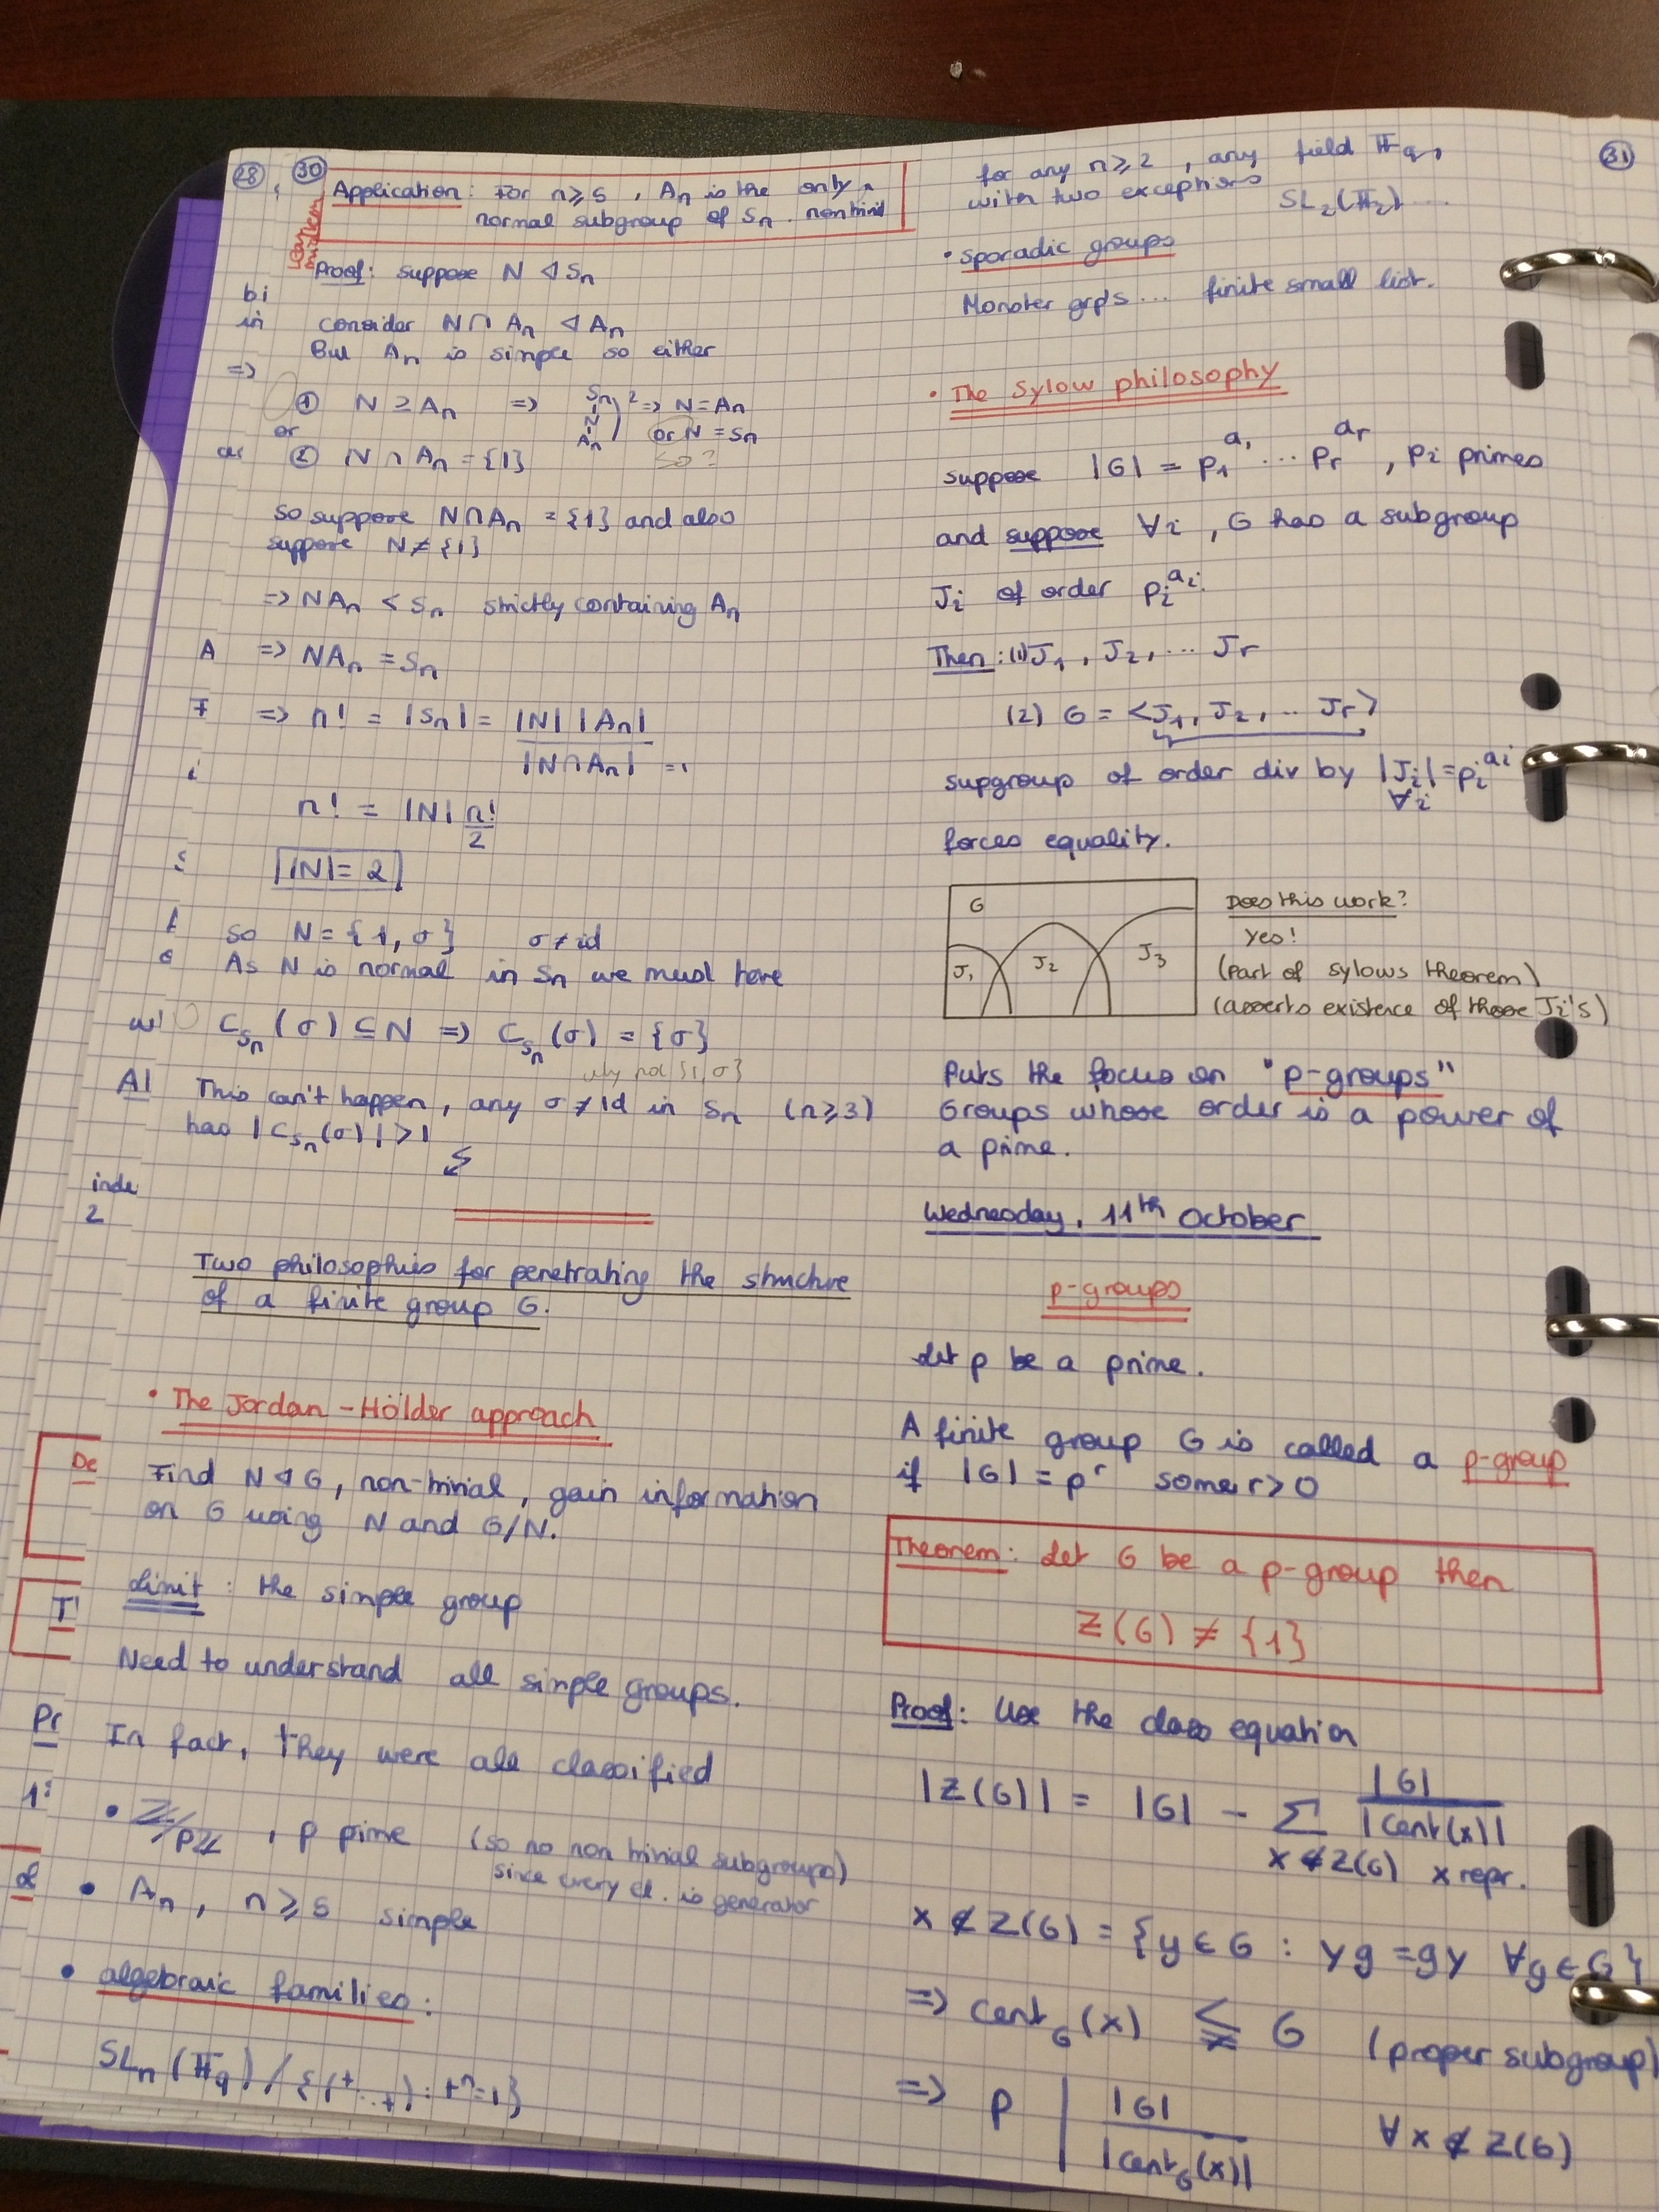 28
30
Application: For n≥5, An is the only
normal subgroup of Sn. nontrivial
Proof: suppose N ⊲ Sn
bi
in
consider N∩An ⊲ An
But An is simple so either
=>
① N ≥ An => Sn N An 2 => N=An
or N=Sn
or
so?
② N∩An = {1}
so suppose N∩An = {1} and also
suppose N≠{1}
=> NAn < Sn strictly containing An
A
=> NAn = Sn
=> n! = |Sn| = |N||An| / |N∩An| =1
n! = |N| n!/2
|N|=2
so N={1,σ} σ≠id
As N is normal in Sn we must have
w'
CSn(σ) ⊆ N => CSn(σ) = {σ}
why not {1,σ}
Al
This can't happen, any σ≠id in Sn (n≥3)
has |CSn(σ)|>1
inde
2
Two philosophies for penetrating the structure
of a finite group G.
• The Jordan-Hölder approach
De
Find N⊲G, non-trivial, gain information
on G using N and G/N.
T
Limit: the simple group
Need to understand all simple groups.
Pr
In fact, they were all classified
1:
• Z/pZ, p prime (so no non trivial subgroups)
since every el. is generator
• An, n≥5 simple
• algebraic families:
SLn(Fq)/{(t...t): t^n=1}
31
for any n≥2, any field Fq,
with two exceptions SL2(F2)...
• sporadic groups
Monster grps... finite small list.
• The Sylow philosophy
suppose |G| = p1^a1 ... pr^ar, pi primes
and suppose ∀i, G has a subgroup
Ji of order pi^ai.
Then: (1) J1, J2, ... Jr
(2) G = <J1, J2, .. Jr>
supgroup of order div by |Ji|=pi^ai
∀i
forces equality.
G
J1 J2 J3
Does this work?
Yes!
(part of sylows theorem)
(asserts existence of those Ji's)
Puts the focus on "p-groups"
Groups whose order is a power of
a prime.
Wednesday, 11th October
p-groups
Let p be a prime.
A finite group G is called a p-group
if |G| = p^r some r>0
Theorem: Let G be a p-group then
Z(G) ≠ {1}
Proof: Use the class equation
|Z(G)| = |G| - Σ |G| / |Cent(x)|
x∉Z(G) x repr.
x∉Z(G) = {y∈G : yg=gy ∀g∈G}
=> CentG(x) ≨ G (proper subgroup)
=> p | |G| / |CentG(x)| ∀x∉Z(G)